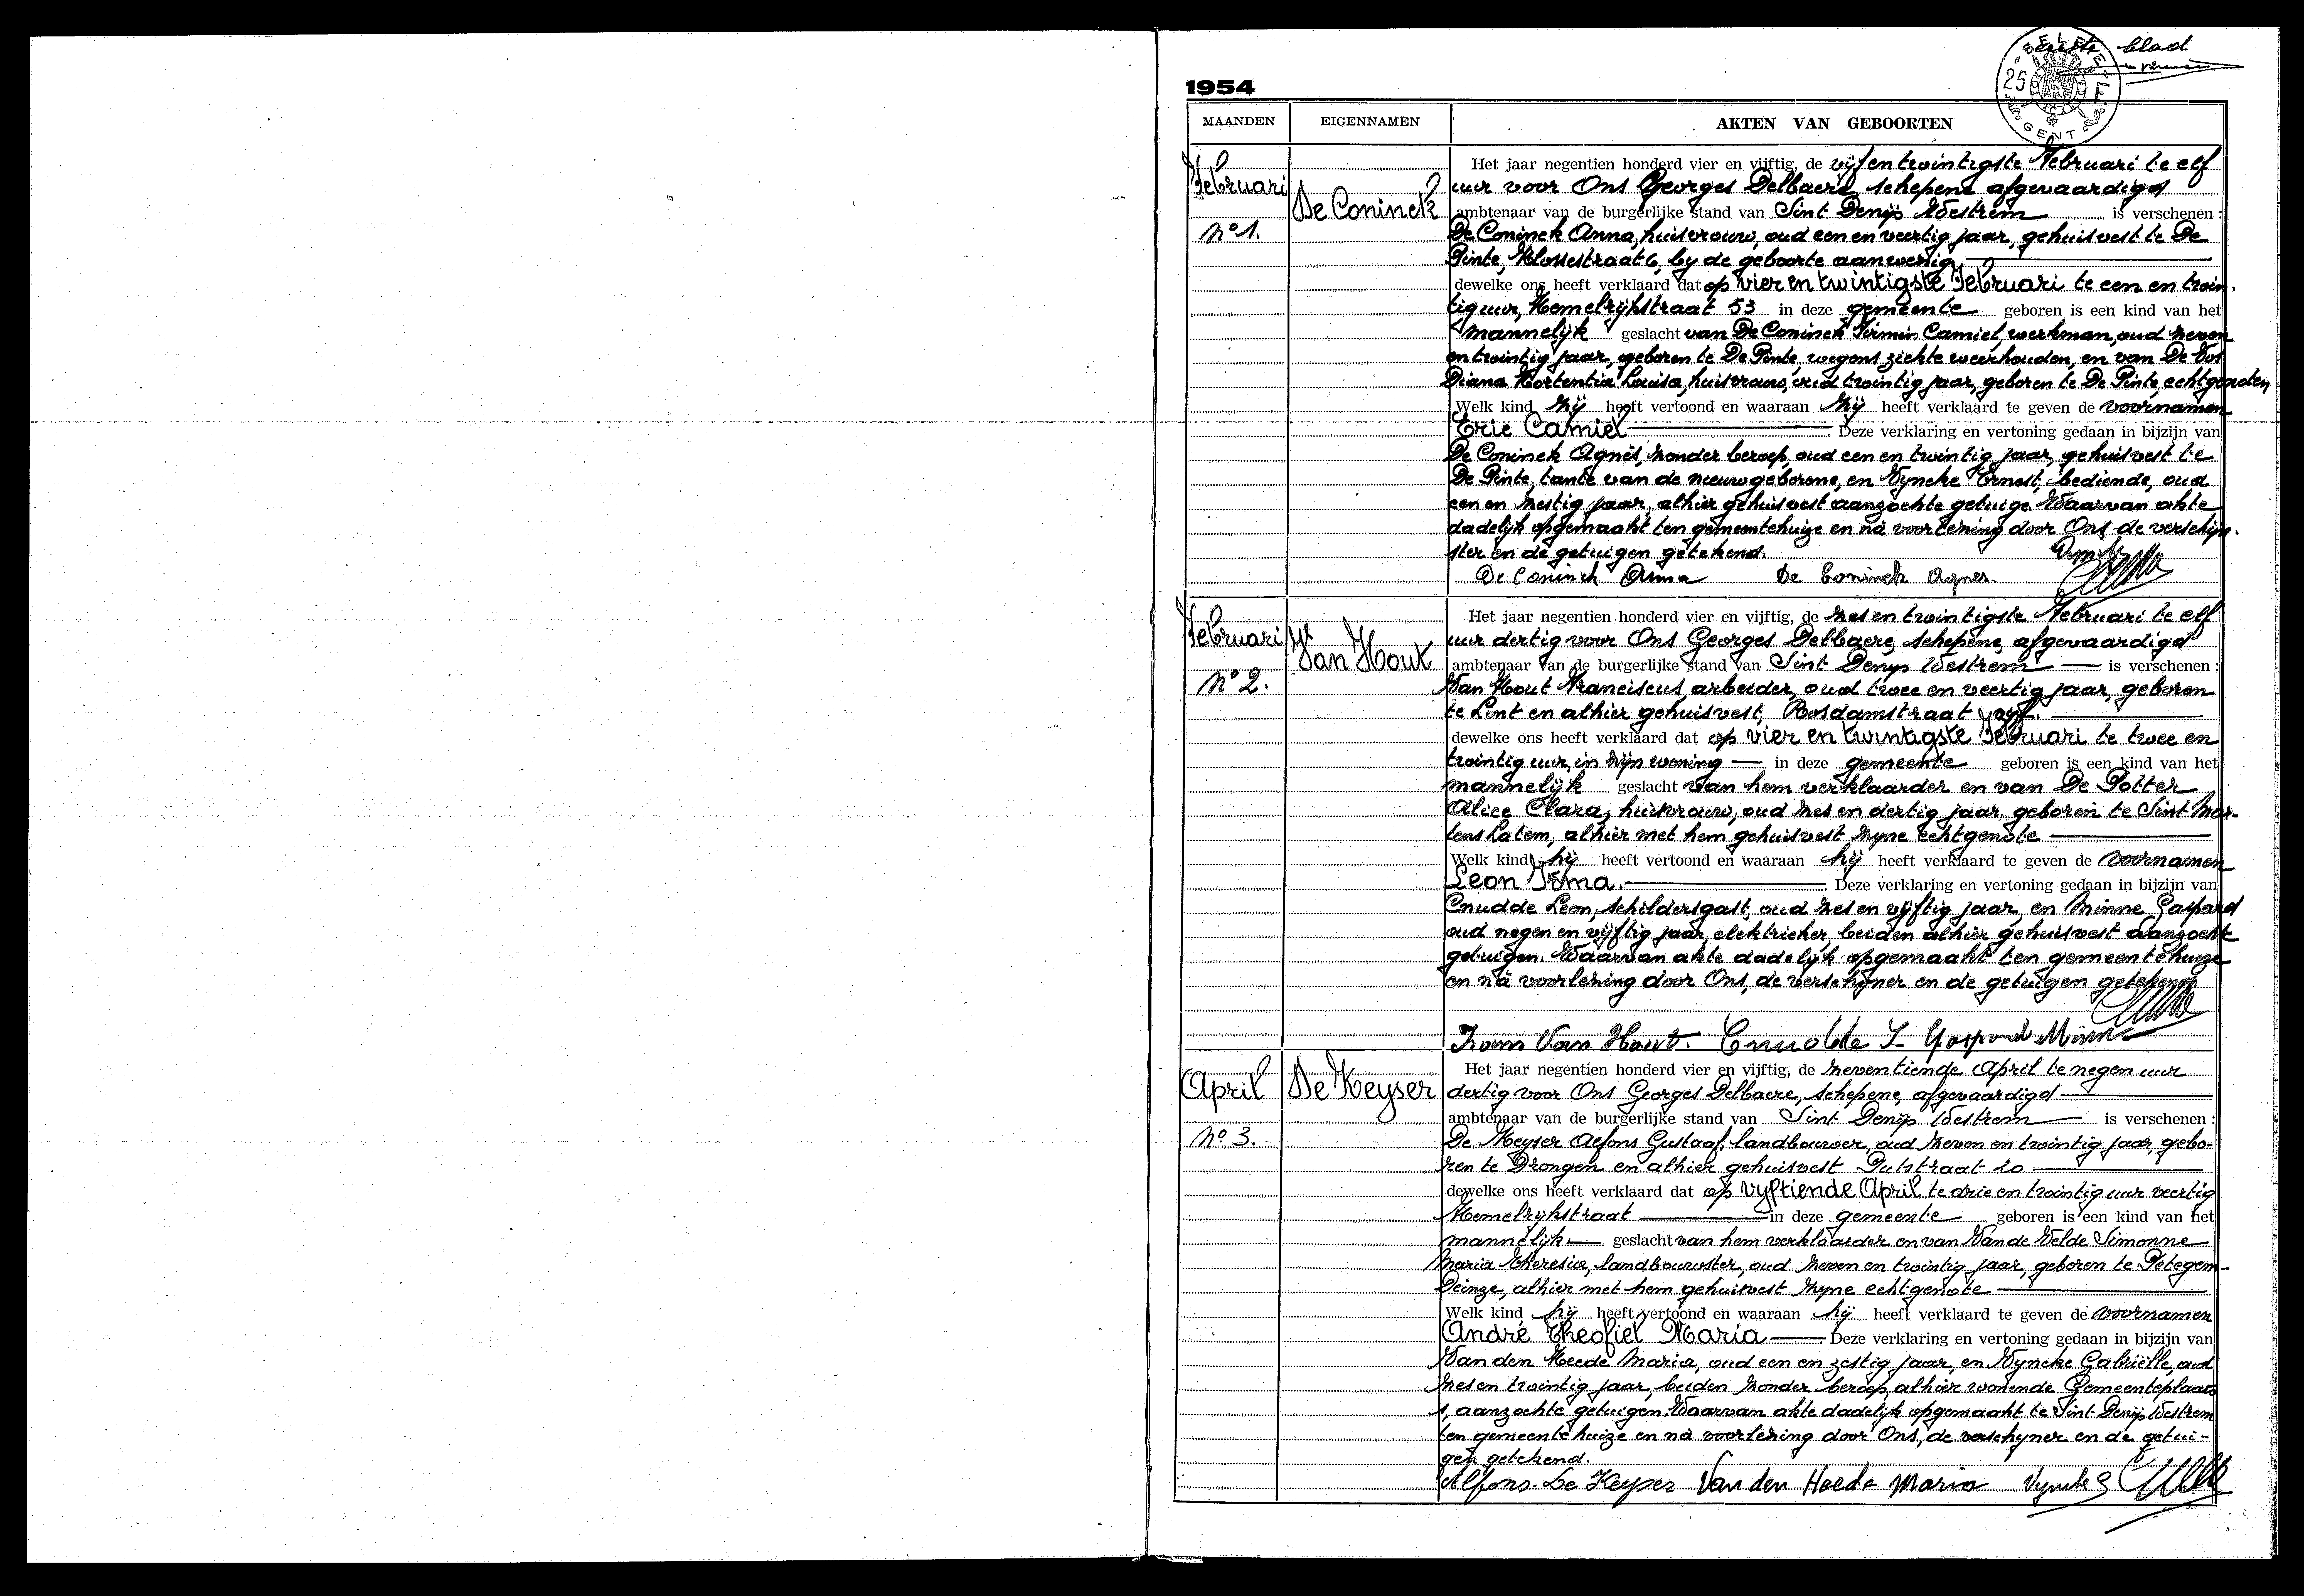 eerste blad
BELGIE
25 F
GENT
1954
MAANDEN EIGENNAMEN AKTEN VAN GEBOORTEN
Februari
De Coninck
No 1.
Het jaar negentien honderd vier en vijftig, de vijfentwintigste Februari te elf
uur voor Ons Georges Delbaere, schepene afgevaardigd
ambtenaar van de burgerlijke stand van Sint Denijs Westrem is verschenen :
De Coninck Anna, huisvrouw, oud een en veertig jaar, gehuisvest te De
Pinte, Klossestraat 6, by de geboorte aanwezig
dewelke ons heeft verklaard dat op vier en twintigste Februari te een en twin-
tig uur, Hemelrijkstraat 53 in deze gemeente geboren is een kind van het
mannelijk geslacht van De Coninck Firmin Camiel, werkman, oud zeven
en twintig jaar, geboren te De Pinte, wegens ziekte weerhouden, en van De Vos
Diana Hortentia Louisa, huisvrouw, oud twintig jaar, geboren te De Pinte, echtgenoten
Welk kind zij heeft vertoond en waaraan zij heeft verklaard te geven de voornamen
Eric Camiel Deze verklaring en vertoning gedaan in bijzijn van
De Coninck Agnès, zonder beroep, oud een en twintig jaar, gehuisvest te
De Pinte, tante van de nieuwgeborene, en Vyncke Ernest, bediende, oud
een en zestig jaar, alhier gehuisvest aanzochte getuige. Waarvan akte
dadelijk opgemaakt ten gemeentehuize en nà voorlezing door Ons, de verschijn-
ster en de getuigen getekend.
De Coninck Anna De Coninck Agnes.
Februari
Van Hout
No 2.
Het jaar negentien honderd vier en vijftig, de zes en twintigste Februari te elf
uur dertig voor Ons Georges Delbaere, schepene, afgevaardigd
ambtenaar van de burgerlijke stand van Sint Denijs Westrem is verschenen :
Van Hout Franciscus, arbeider, oud twee en veertig jaar, geboren
te Lint en alhier gehuisvest, Rosdamstraat
dewelke ons heeft verklaard dat op vier en twintigste Februari te twee en
twintig uur, in zijn woning in deze gemeente geboren is een kind van het
mannelijk geslacht van hem verklaarder en van De Potter
Alice Clara, huisvrouw, oud zes en dertig jaar, geboren te Sint Mar-
tens Latem, alhier met hem gehuisvest zyne echtgenote
Welk kind hij heeft vertoond en waaraan hij heeft verklaard te geven de voornamen
Leon Irma. Deze verklaring en vertoning gedaan in bijzijn van
Cnudde Leon, schildersgast, oud zes en vijftig jaar, en Minne Gaspard
oud negen en vijftig jaar, elektrieker, beiden alhier gehuisvest aanzochte
getuigen. Waarvan akte dadelijk opgemaakt ten gemeentehuize
en nà voorlezing door Ons, de verschijner en de getuigen getekend
Frans Van Hout. Cnudde L Gaspard Minne
April
De Keyser
No 3.
Het jaar negentien honderd vier en vijftig, de zeventiende April te negen uur
dertig voor Ons Georges Delbaere, schepene, afgevaardigd
ambtenaar van de burgerlijke stand van Sint Denijs Westrem is verschenen :
De Keyser Alfons Gustaaf, landbouwer, oud zeven en twintig jaar, gebo-
ren te Drongen en alhier gehuisvest Putstraat 20
dewelke ons heeft verklaard dat op vyftiende April te drie en twintig uur veertig
Hemelrykstraat in deze gemeente geboren is een kind van het
mannelijk geslacht van hem verklaarder en van Van de Velde Simonne
Maria Theresia, landbouwster, oud zeven en twintig jaar, geboren te Petegem-
Deinze, alhier met hem gehuisvest zyne echtgenote
Welk kind hij heeft vertoond en waaraan hij heeft verklaard te geven de voornamen
André Theofiel Maria Deze verklaring en vertoning gedaan in bijzijn van
Van den Heede Maria, oud een en zestig jaar, en Vyncke Gabriëlle, oud
zes en twintig jaar, beiden zonder beroep, alhier wonende Gemeenteplaats
1, aanzochte getuigen. Waarvan akte dadelijk opgemaakt te Sint Denijs Westrem
ten gemeentehuize en nà voorlezing door Ons, de verschyner en de getui-
gen getekend.
Alfons De Keyser Van den Heede Maria Vyncke G